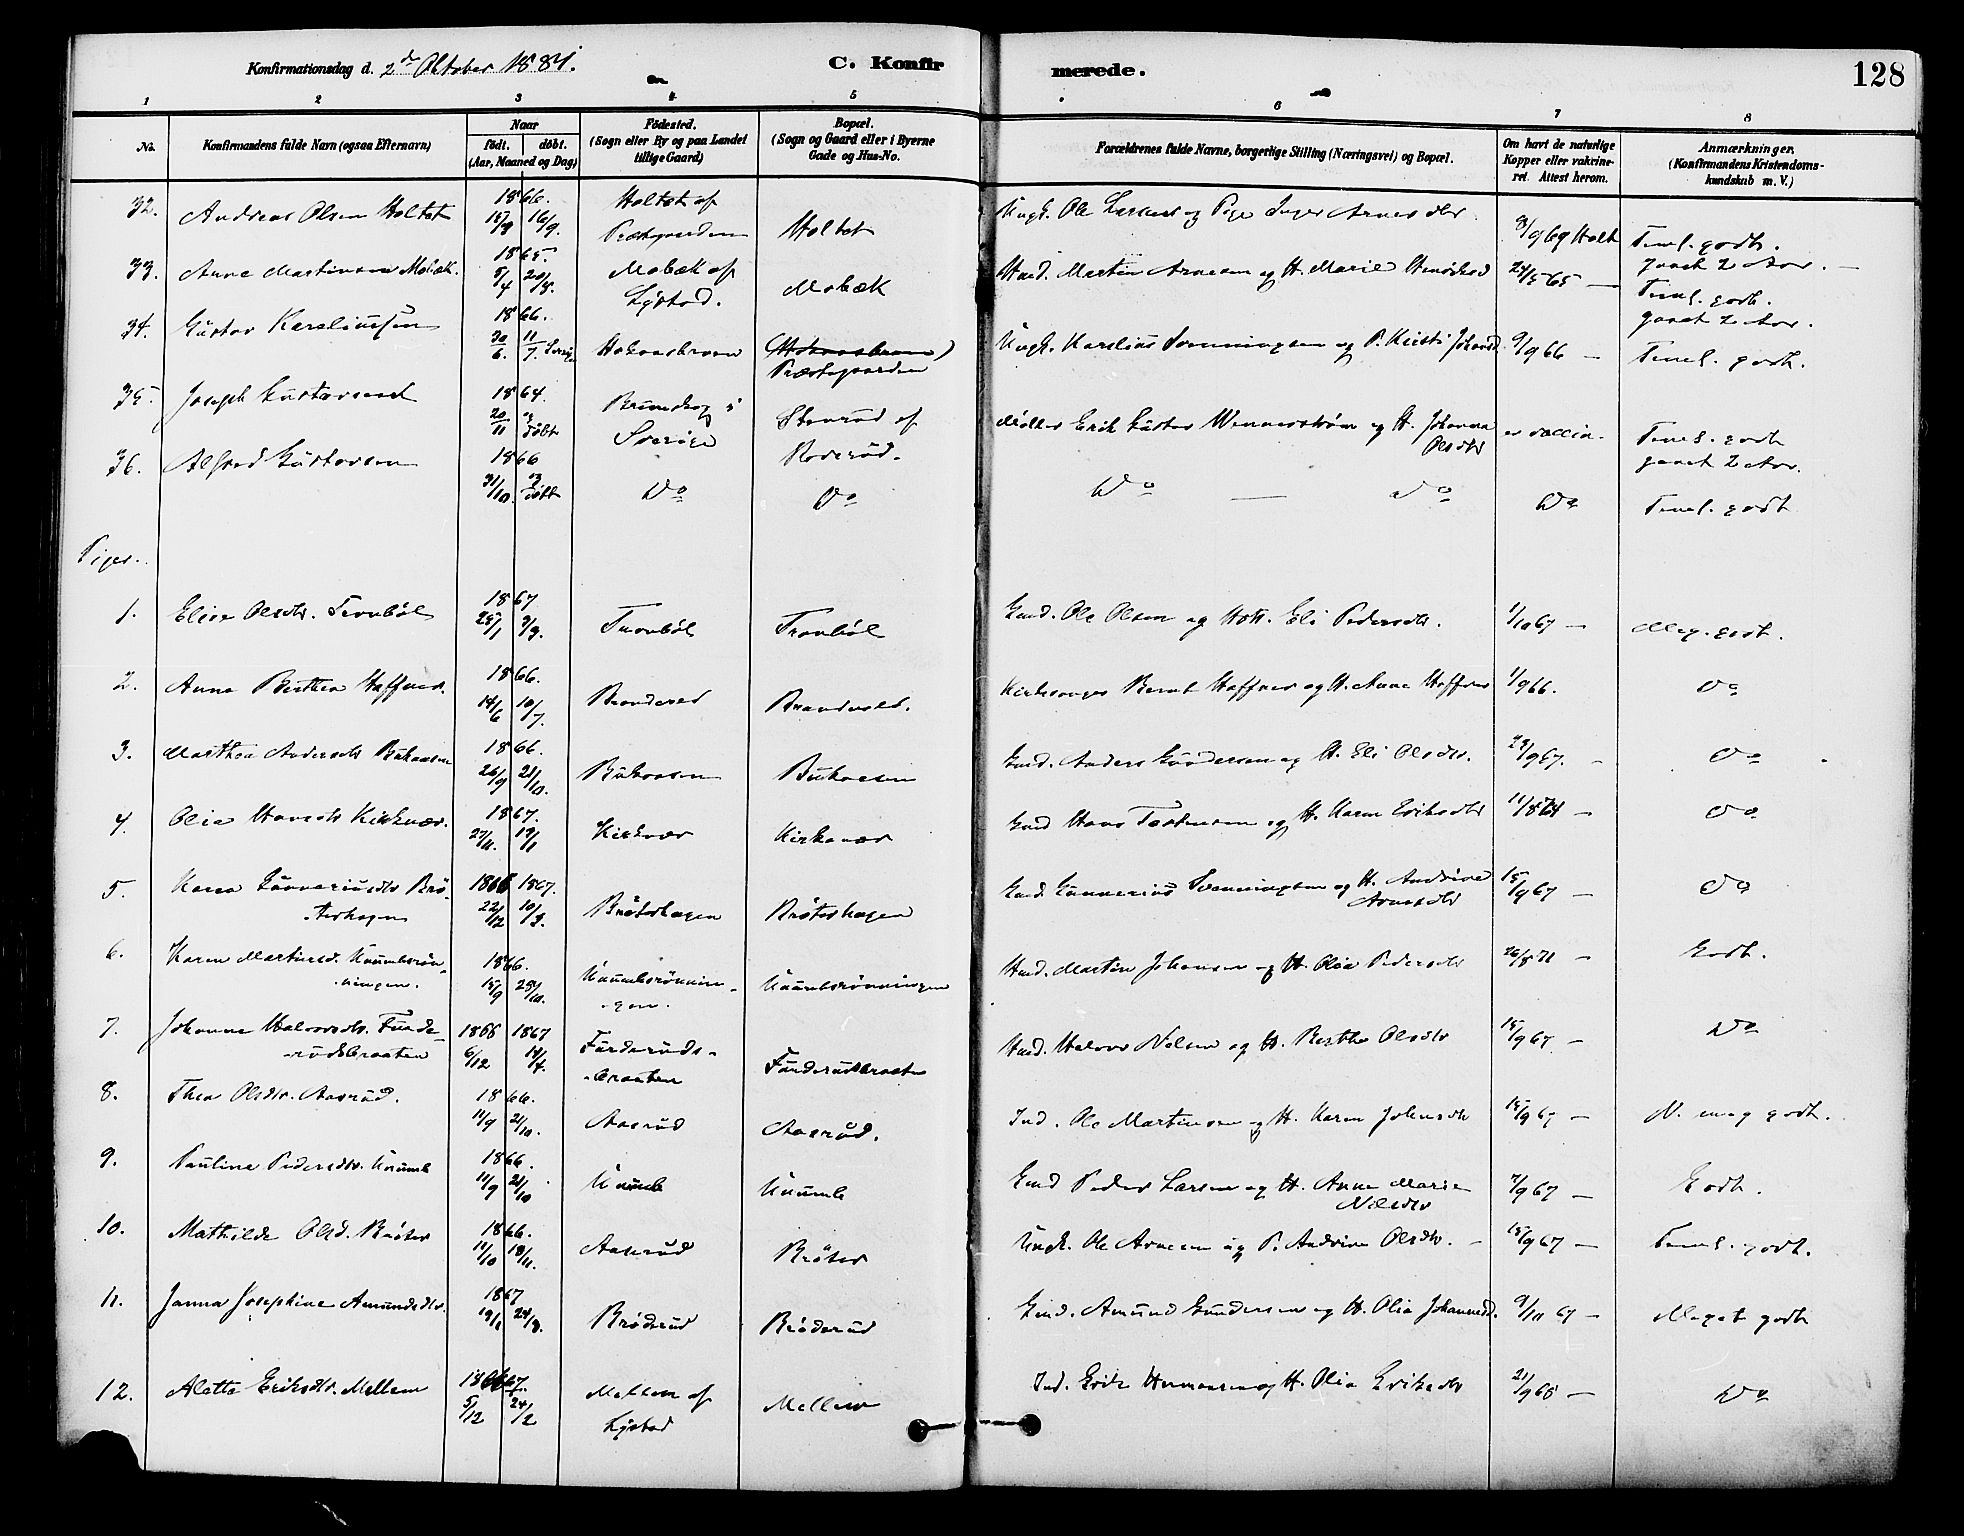 Konfirmationsdag d. 2de Oktober 1881.
C. Konfirmerede.
128
1 2 3 4 5 6 7 8
No.
Konfirmandens fulde Navn (ogsaa Efternavn)
Naar
født. døbt.
(Aar, Maaned og Dag)
Fødested.
(Sogn eller By og paa Landet
tillige Gaard)
Bopæl.
(Sogn og Gaard eller i Byerne
Gade og Hus-No.
Forældrenes fulde Navne, borgerlige Stilling (Næringsvei) og Bopæl.
Om havt de naturlige
Kopper eller vakcine-
ret. Attest herom.
Anmærkninger.
(Konfirmandens Kristendoms-
kundskab m. V.)
32. Andreas Olsen Holtet 1866. 16/9. Holtet af Prestgaarden Holtet Ungk. Ole Larsen og Pige Inger Arnesdtr. 8/9 69 Holt Temel. godt. gaaet 2 Aar.
33. Arne Martinsen Mobæk. 1865. 5/4 20/8. Mobæk af Lystad. Mobæk Husd. Martin Arnesen og H. Marie 24/5 65 Temel. godt. gaaet 2 Aar.
34. Gustav Kareliussen 1866. 30/6. 11/7. Præstegaarden Ungk. Karelius Svenningsen og P. Kristi 9/9 66 Temel. godt.
35. Joseph Gustavsen 1864 20/11 og døbt Brunskog i Sverige Stenrud af Roverud. Møller Erik Gustav Wennerstrøm og H. Johanna Olsdtr er vaccin. Temel. godt gaaet 2 Aar.
36. Alfred Gustavsen 1866 31/10. og døbt Do Do Do Do Do Temel. godt
Piger.
1. Elise Olsdtr. Tronbøl 1867 25/1 3/3. Tronbøl Tronbøl Gmd. Ole Olsen og Hstr. Eli Pedersdtr. 1/10 67 Meg. godt.
2. Anna Berthea Haffner. 1866. 14/6 10/7. Brandvold Brandvold. Kirkesanger Bernt Haffner og H. Anne Haffner 1/9 66. Do
3. Marthea Andersdtr Bukaasen 1866. 26/9 21/10. Bukaasen Bukaasen Gmd. Anders Gundersen og H. Eli Olsdtr. 29/9 67. Do
4. Olia Hansdtr Kirkevær. 1867. Kirkevær Kirkevær Gmd Hans Torstensen og H. Karen Eriksdtr Do
5. Karen Gunneriusdtr Brøterhagen 1866 1867. 22/12 10/3. Brøterhagen Brøterhagen Gmd. Gunnerius Svenningsen og H. Andrine Arnesdtr 15/9 67 Do
6. Karen Martinsd. Knumbsrønningen. 1866. 15/9 25/10. Knumbsrønningen. Knumbsrønningen Husd. Martin Johansen og H. Olia Pedersdtr 26/8 71 Godt.
7. Johanne Halvorsdtr. Funderudsbraaten 1866 1867 6/12 14/4. Funderudsbraaten Funderudsbraaten Husd. Halvor Nilsen og H. Berthe Olsdtr 15/9 67 Do
8. Thea Olsdtr. Aasrud. 1866. 11/9 21/10. Aasrud Aasrud. Ind. Ole Martinsen og H. Karen Johnsdtr 15/9 67 N. meg godt.
9. Pauline Pedersdtr. Knumb 1866. 11/9 21/10 Knumb Knumb Gmd Peder Larsen og H. Anne Marie Nilsdtr 7/9 67 Godt.
10. Mathilde Olsd. Brøter 1866. 11/10 18/11. Aasrud Brøter Ungk. Ole Arnesen og P. Andrine Olsdtr. 15/9 67 Temel. godt.
11. Janna Josephine Amundsdtr. 1867 19/1 24/3. Brøderud Brøderud Gmd. Amund Gundersen og H. Olia Johannesd. 9/10 67 Meget godt
12. Alette Eriksdtr. Mellem 1866 67. 5/12 24/2 Mellem af Lystad Mellem Ind. Erik Hermansen og H. Olia Eriksdtr 21/9 68 Do